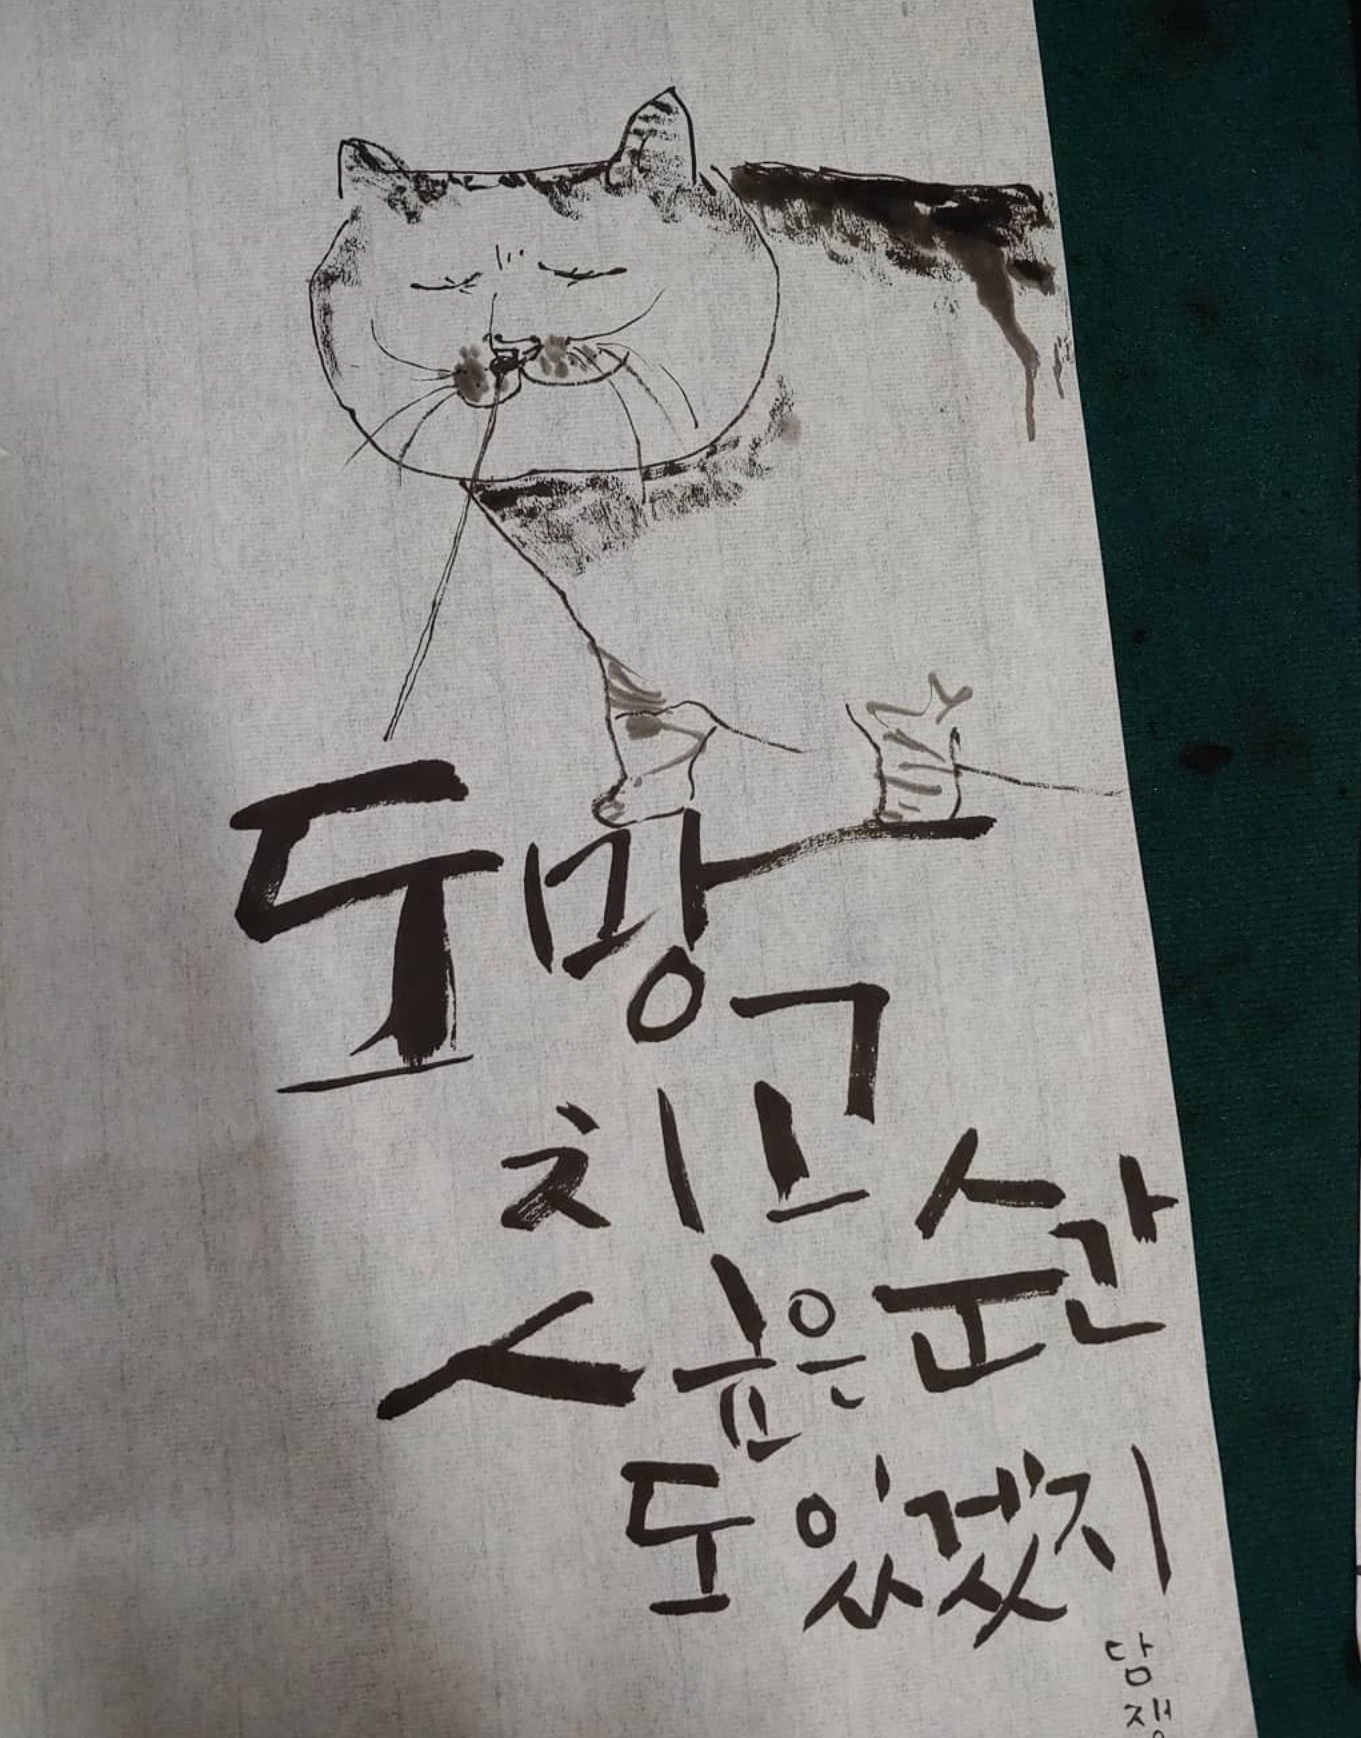 도망
치고
싶은 순간
도 있겠지
담
쟁